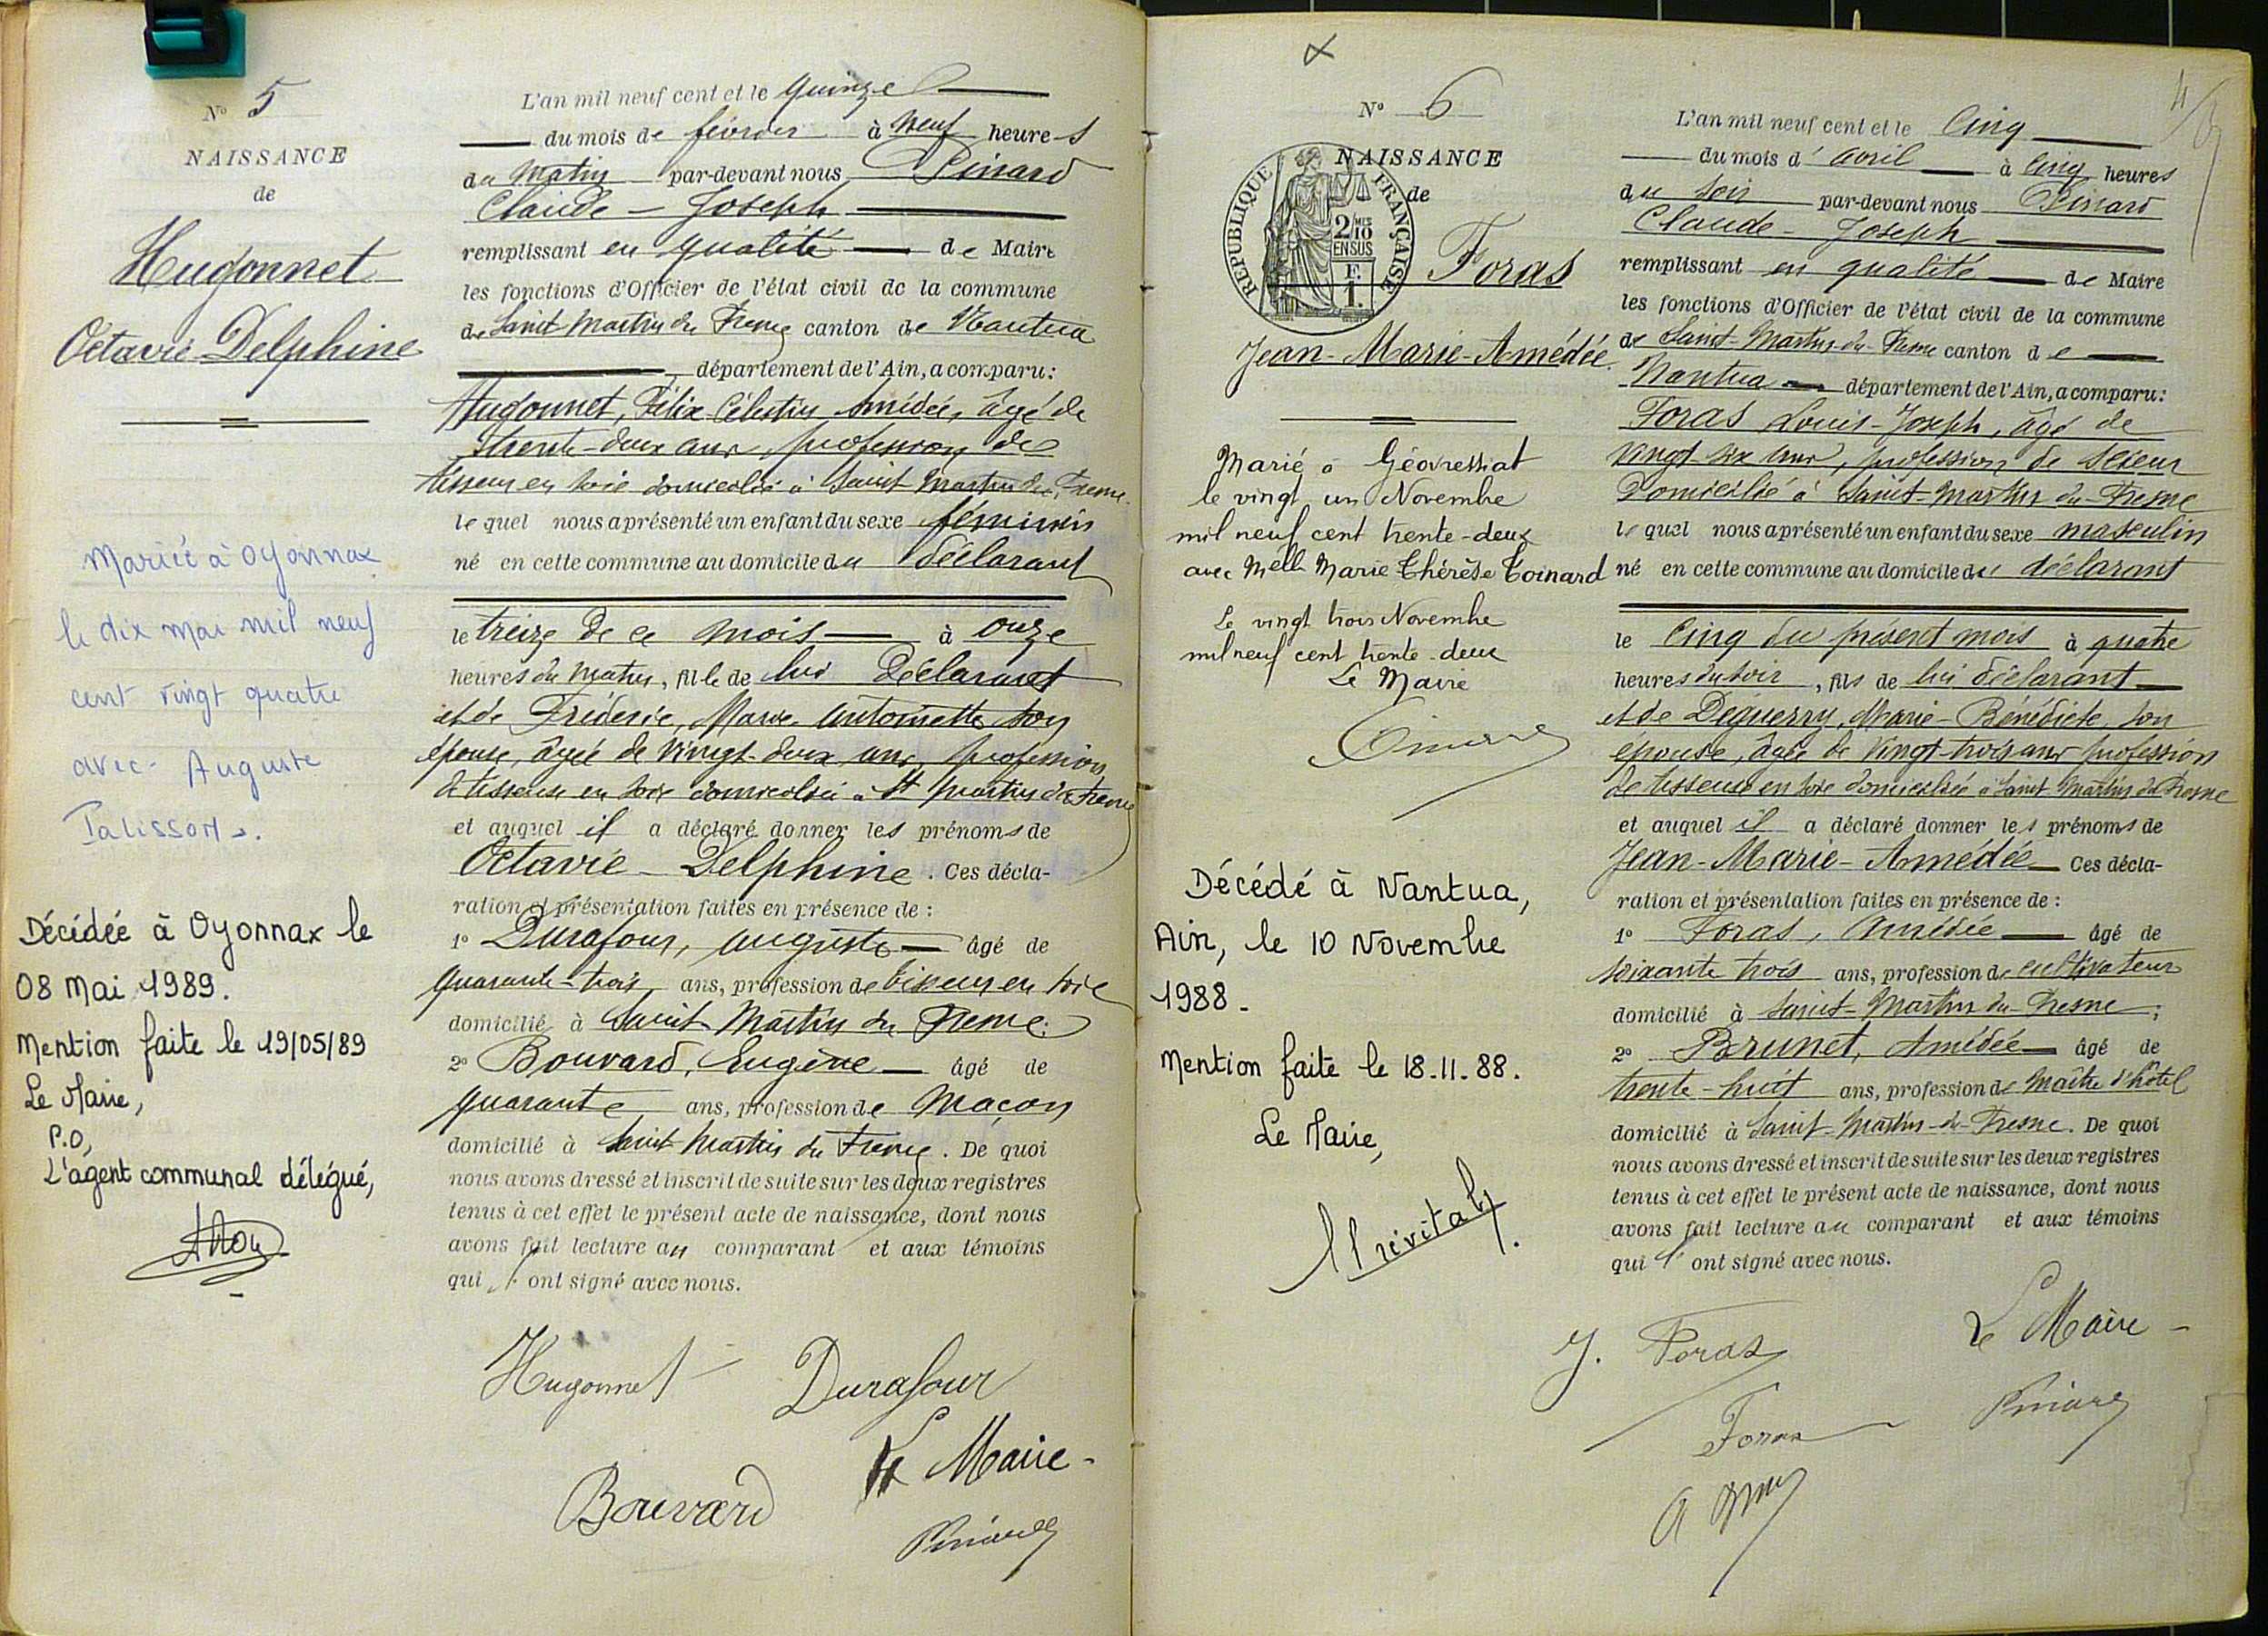 N° 5
NAISSANCE
de
Hugonnet
Octavie Delphine
Mariée à Oyonnax
le dix mai mil neuf
cent vingt quatre
avec Auguste
Palissot
Décédée à Oyonnax le
08 Mai 1989.
Mention faite le 19/05/89
Le Maire,
P.O,
L'agent communal délégué,
L'an mil neuf cent et le quinze
du mois de février à neuf heures
du matin par-devant nous Pinard
Claude - Joseph
remplissant en qualité de Maire
les fonctions d'Officier de l'état civil de la commune
de Saint Martin du Fresne canton de Nantua
département de l'Ain, a comparu:
Hugonnet, Félix Célestin Amédée, âgé de
trente-deux ans, profession de
tisseur en soie domicilié à Saint Martin du Fresne.
lequel nous a présenté un enfant du sexe féminin
né en cette commune au domicile du déclarant
le treize de ce mois à onze
heures du matin, fille de lui déclarant
et de Fréderic, Marie Antoinette son
épouse, âgée de vingt-deux ans, profession
de tisseuse en soie domiciliée à St Martin du Fresne
et auquel il a déclaré donner les prénoms de
Octavie - Delphine. Ces décla-
ration et présentation faites en présence de :
1° Durafour, Auguste âgé de
quarante-trois ans, profession de tisseur en soie
domicilié à Saint Martin du Fresne:
2° Bouvard, Eugène âgé de
quarante ans, profession de Maçon
domicilié à Saint Martin du Fresne. De quoi
nous avons dressé et inscrit de suite sur les deux registres
tenus à cet effet le présent acte de naissance, dont nous
avons fait lecture au comparant et aux témoins
qui l' ont signé avec nous.
Hugonnet Durafour
Le Maire
Bouvard
Pinard
N° 6
NAISSANCE
de
REPUBLIQUE FRANÇAISE
2/10 EN SUS
F. 1.
Foras
Jean-Marie-Amédée.
Marié à Géovressiat
le vingt un Novembre
mil neuf cent trente-deux
avec Melle Marie Thérèse Toinard
Le vingt trois Novembre
mil neuf cent trente-deux
Le Maire
Décédé à Nantua,
Ain, le 10 Novembre
1988.
Mention faite le 18.11.88.
Le Maire,
4
L'an mil neuf cent et le cinq
du mois d' avril à cinq heures
du soir par-devant nous Pinard
Claude - Joseph
remplissant en qualité de Maire
les fonctions d'Officier de l'état civil de la commune
de Saint-Martin-du-Fresne canton de
Nantua département de l'Ain, a comparu:
Foras Louis-Joseph, âgé de
vingt-six ans, profession de scieur
domicilié à Saint-Martin du-Fresne
lequel nous a présenté un enfant du sexe masculin
né en cette commune au domicile du déclarant
le cinq du présent mois à quatre
heures du soir, fils de lui déclarant
et de Déguerry, Marie-Bénédicte, son
épouse, âgée de vingt-trois ans profession
de tisseuse en soie domiciliée à Saint Martin du Fresne
et auquel il a déclaré donner les prénoms de
Jean-Marie-Amédée Ces décla-
ration et présentation faites en présence de :
1° Foras, Amédée âgé de
soixante trois ans, profession de cultivateur
domicilié à Saint-Martin du-Fresne;
2° Brunet, Amédée âgé de
trente-huit ans, profession de Maître d'hôtel
domicilié à Saint-Martin-du-Fresne. De quoi
nous avons dressé et inscrit de suite sur les deux registres
tenus à cet effet le présent acte de naissance, dont nous
avons fait lecture au comparant et aux témoins
qui l' ont signé avec nous.
J. Foras Le Maire
Foras Pinard